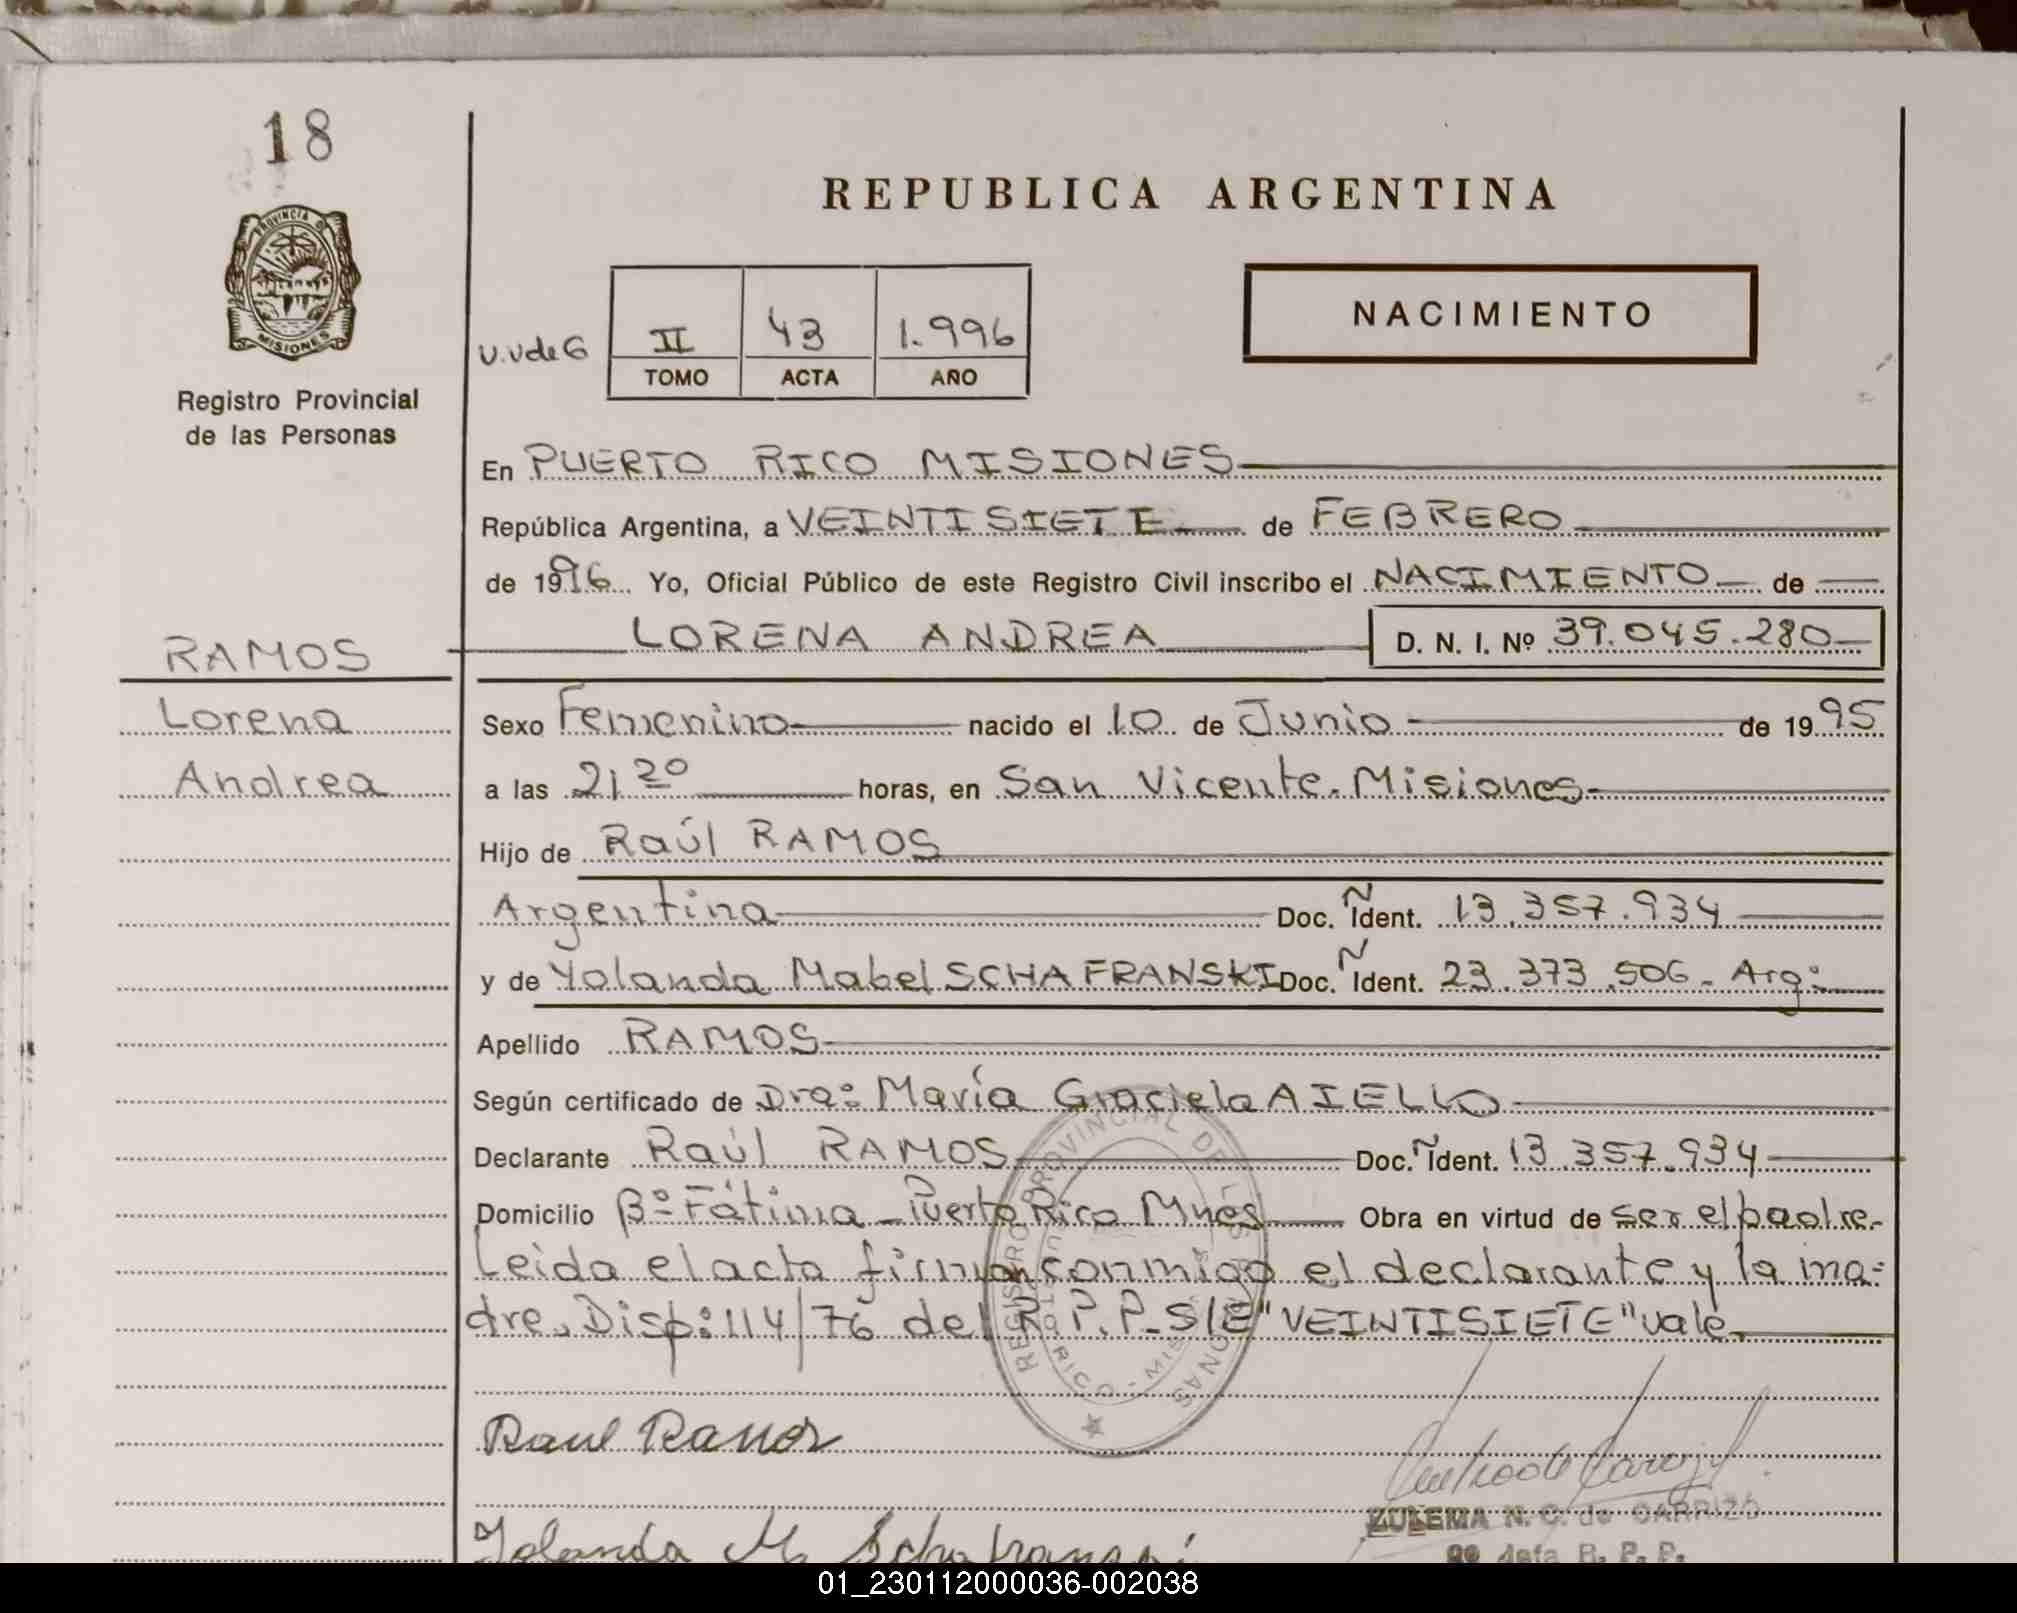 18
REPUBLICA ARGENTINA
PROVINCIA
MISIONES
Registro Provincial
de las Personas
U.V de G
II 43 1.996
TOMO ACTA AÑO
NACIMIENTO
En PUERTO RICO MISIONES
República Argentina, a VEINTISIETE de FEBRERO
de 1996 Yo, Oficial Público de este Registro Civil inscribo el NACIMIENTO de
LORENA ANDREA D. N. I. Nº 39.045.280
RAMOS
Lorena
Andrea
Sexo Femenino nacido el 10 de Junio de 1995
a las 21 20 horas, en San Vicente. Misiones
Hijo de Raúl RAMOS
Argentina Doc. Ident. 13.357.934
y de Yolanda Mabel SCHAFRANSKI Doc. Ident. 23.373.506 - Arg:
Apellido RAMOS
Según certificado de Dra: María Graciela AIELLO
Declarante Raúl RAMOS Doc. Ident. 13.357.934
Domicilio Bº Fátima - Puerto Rico Mnes Obra en virtud de ser el padre.
Leida el acta firman conmigo el declarante y la ma=
dre. Disp: 114/76 del R.P.P. S/E "VEINTISIETE" vale
REGISTRO PROVINCIAL DE LAS PERSONAS
Raul Ramos
ZULEMA N. C. de CARRIZO
Yolanda M Schafranski
01_230112000036-002038